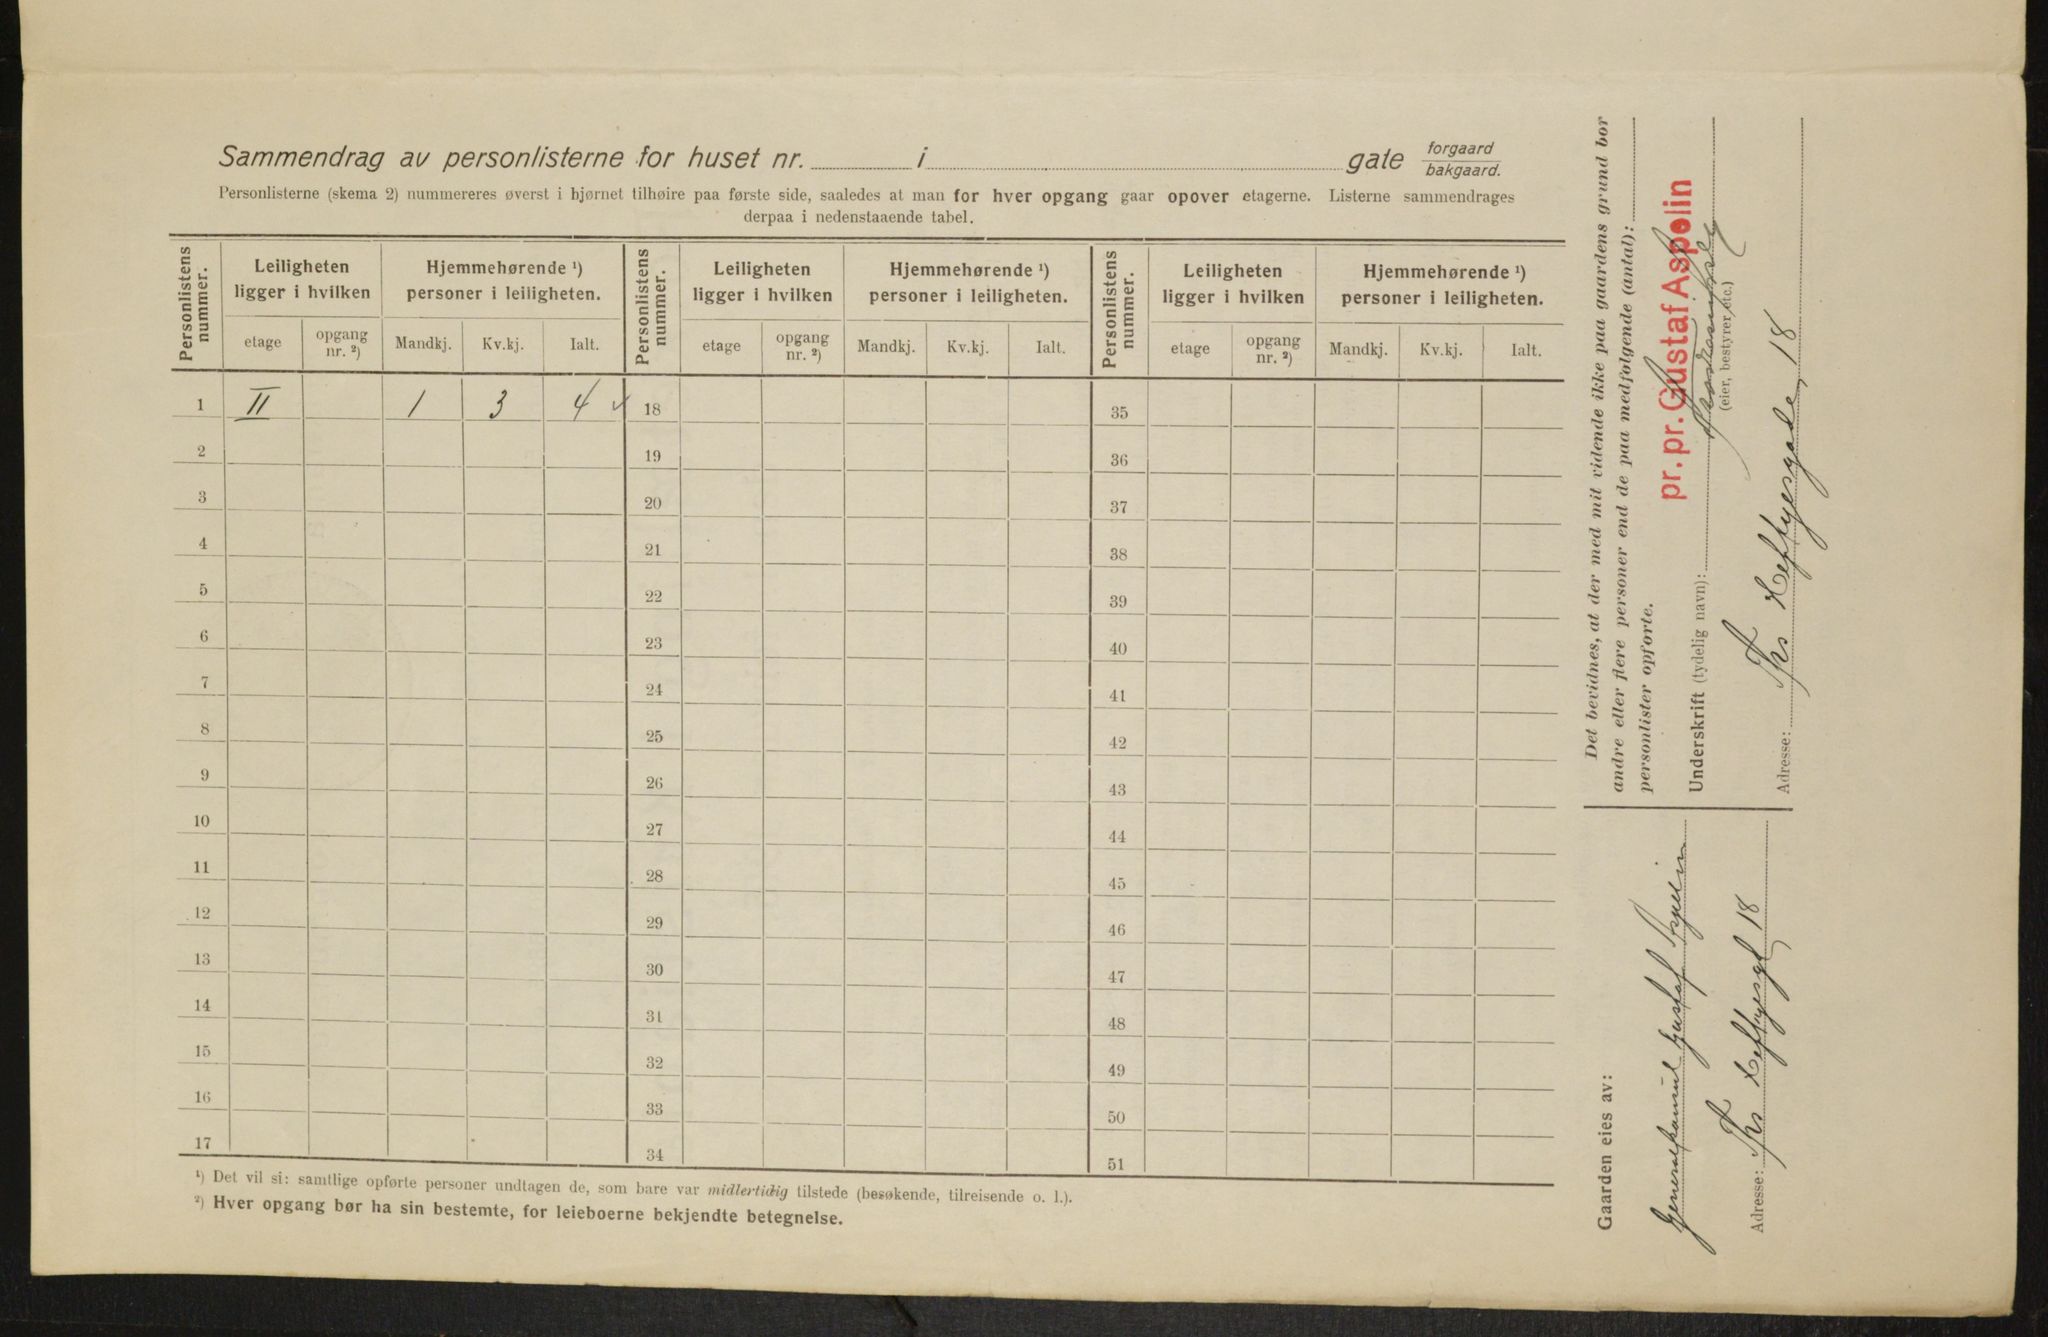 Sammendrag av personlisterne for huset nr. i gate forgaard bakgaard.
Personlisterne (skema 2) nummereres øverst i hjørnet tilhøire paa første side, saaledes at man for hver opgang gaar opover etagerne. Listerne sammendrages
derpaa i nedenstaaende tabel.
Personlistens nummer. Leiligheten ligger i hvilken Hjemmehørende ¹) personer i leiligheten. Personlistens nummer. Leiligheten ligger i hvilken Hjemmehørende ¹) personer i leiligheten. Personlistens nummer. Leiligheten ligger i hvilken Hjemmehørende ¹) personer i leiligheten.
etage opgang nr. ²) Mandkj. Kv.kj. Ialt. etage opgang nr. ²) Mandkj. Kv.kj. Ialt. etage opgang nr. ²) Mandkj. Kv.kj. Ialt.
1 II 1 3 4 ✓ 18 35
2 19 36
3 20 37
4 21 38
5 22 39
6 23 40
7 24 41
8 25 42
9 26 43
10 27 44
11 28 45
12 29 46
13 30 47
14 31 48
15 32 49
16 33 50
17 34 51
¹) Det vil si: samtlige opførte personer undtagen de, som bare var midlertidig tilstede (besøkende, tilreisende o. l.).
²) Hver opgang bør ha sin bestemte, for leieboerne bekjendte betegnelse.
Det bevidnes, at der med mit vidende ikke paa gaardens grund bor
andre eller flere personer end de paa medfølgende (antal):
personlister opførte.
pr. pr. Gustaf Aspelin
Underskrift (tydelig navn):
(eier, bestyrer etc.)
Adresse: Ths Heftyesgade 18
Gaarden eies av:
Generalkonsul Gustaf Aspelin
Adresse: Ths Heftyesgt 18